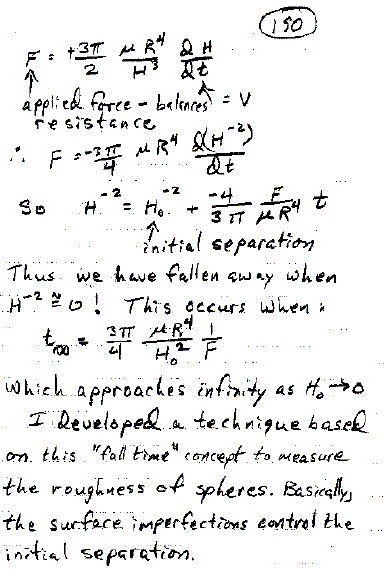 150
F = +3π/2 μR⁴/H³ ∂H/∂t
applied force - balances = V
resistance
∴ F = -3π/4 μR⁴ ∂(H⁻²)/∂t
So H⁻² = H₀⁻² + -4/3π F/μR⁴ t
initial separation
Thus we have fallen away when
H⁻² ≅ 0! This occurs when:
t∞ = 3π/4 μR⁴/H₀² 1/F
which approaches infinity as H₀→0
I developed a technique based
on this "fall time" concept to measure
the roughness of spheres. Basically,
the surface imperfections control the
initial separation.